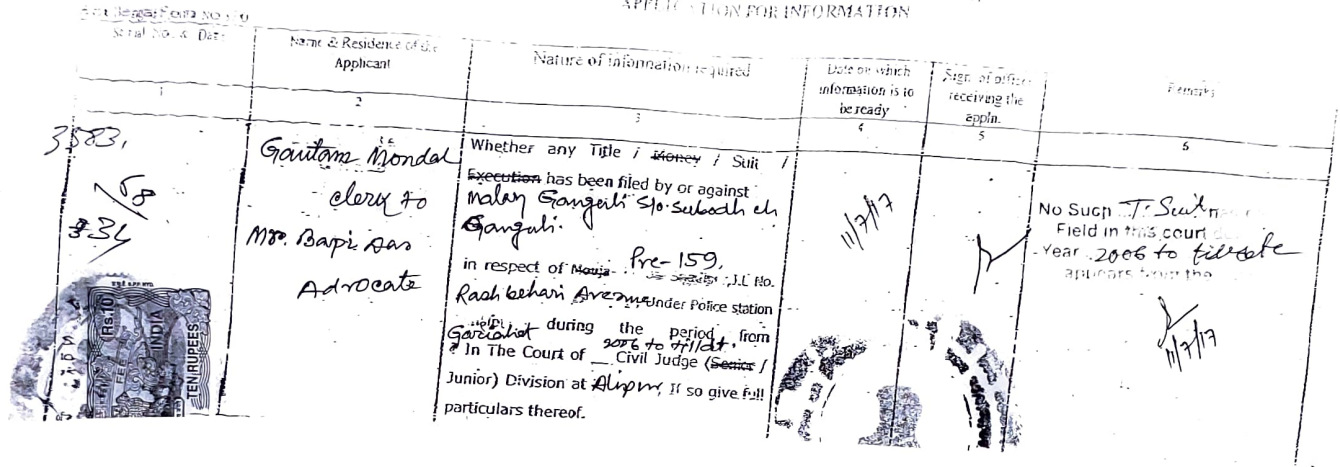 APPLICATION FOR INFORMATION
Serial No. & Date
Name & Residence of the
Applicant
Nature of information required
Date on which
information is to
be ready
Sign. of officer
receiving the
appln.
Remarks
1
2
3
4
5
6
3583,
Gautam Mondal
clerk to
Mr. Bapi Das
Advocate
Whether any Title / Money / Suit /
Execution has been filed by or against
Malay Ganguli S/o. Subodh ch
Ganguli.
in respect of Mouja Pre-159, J.L No.
Rashbehari Avenue Under Police station
Gariahat during the period from
2006 to till dt.
In The Court of __ Civil Judge (Senior /
Junior) Division at Alipur, If so give full
particulars thereof.
11/7/17
No Such T. Suit
Field in this court
Year 2006 to till date
appears from the
11/7/17
Rs.10
INDIA
TEN RUPEES